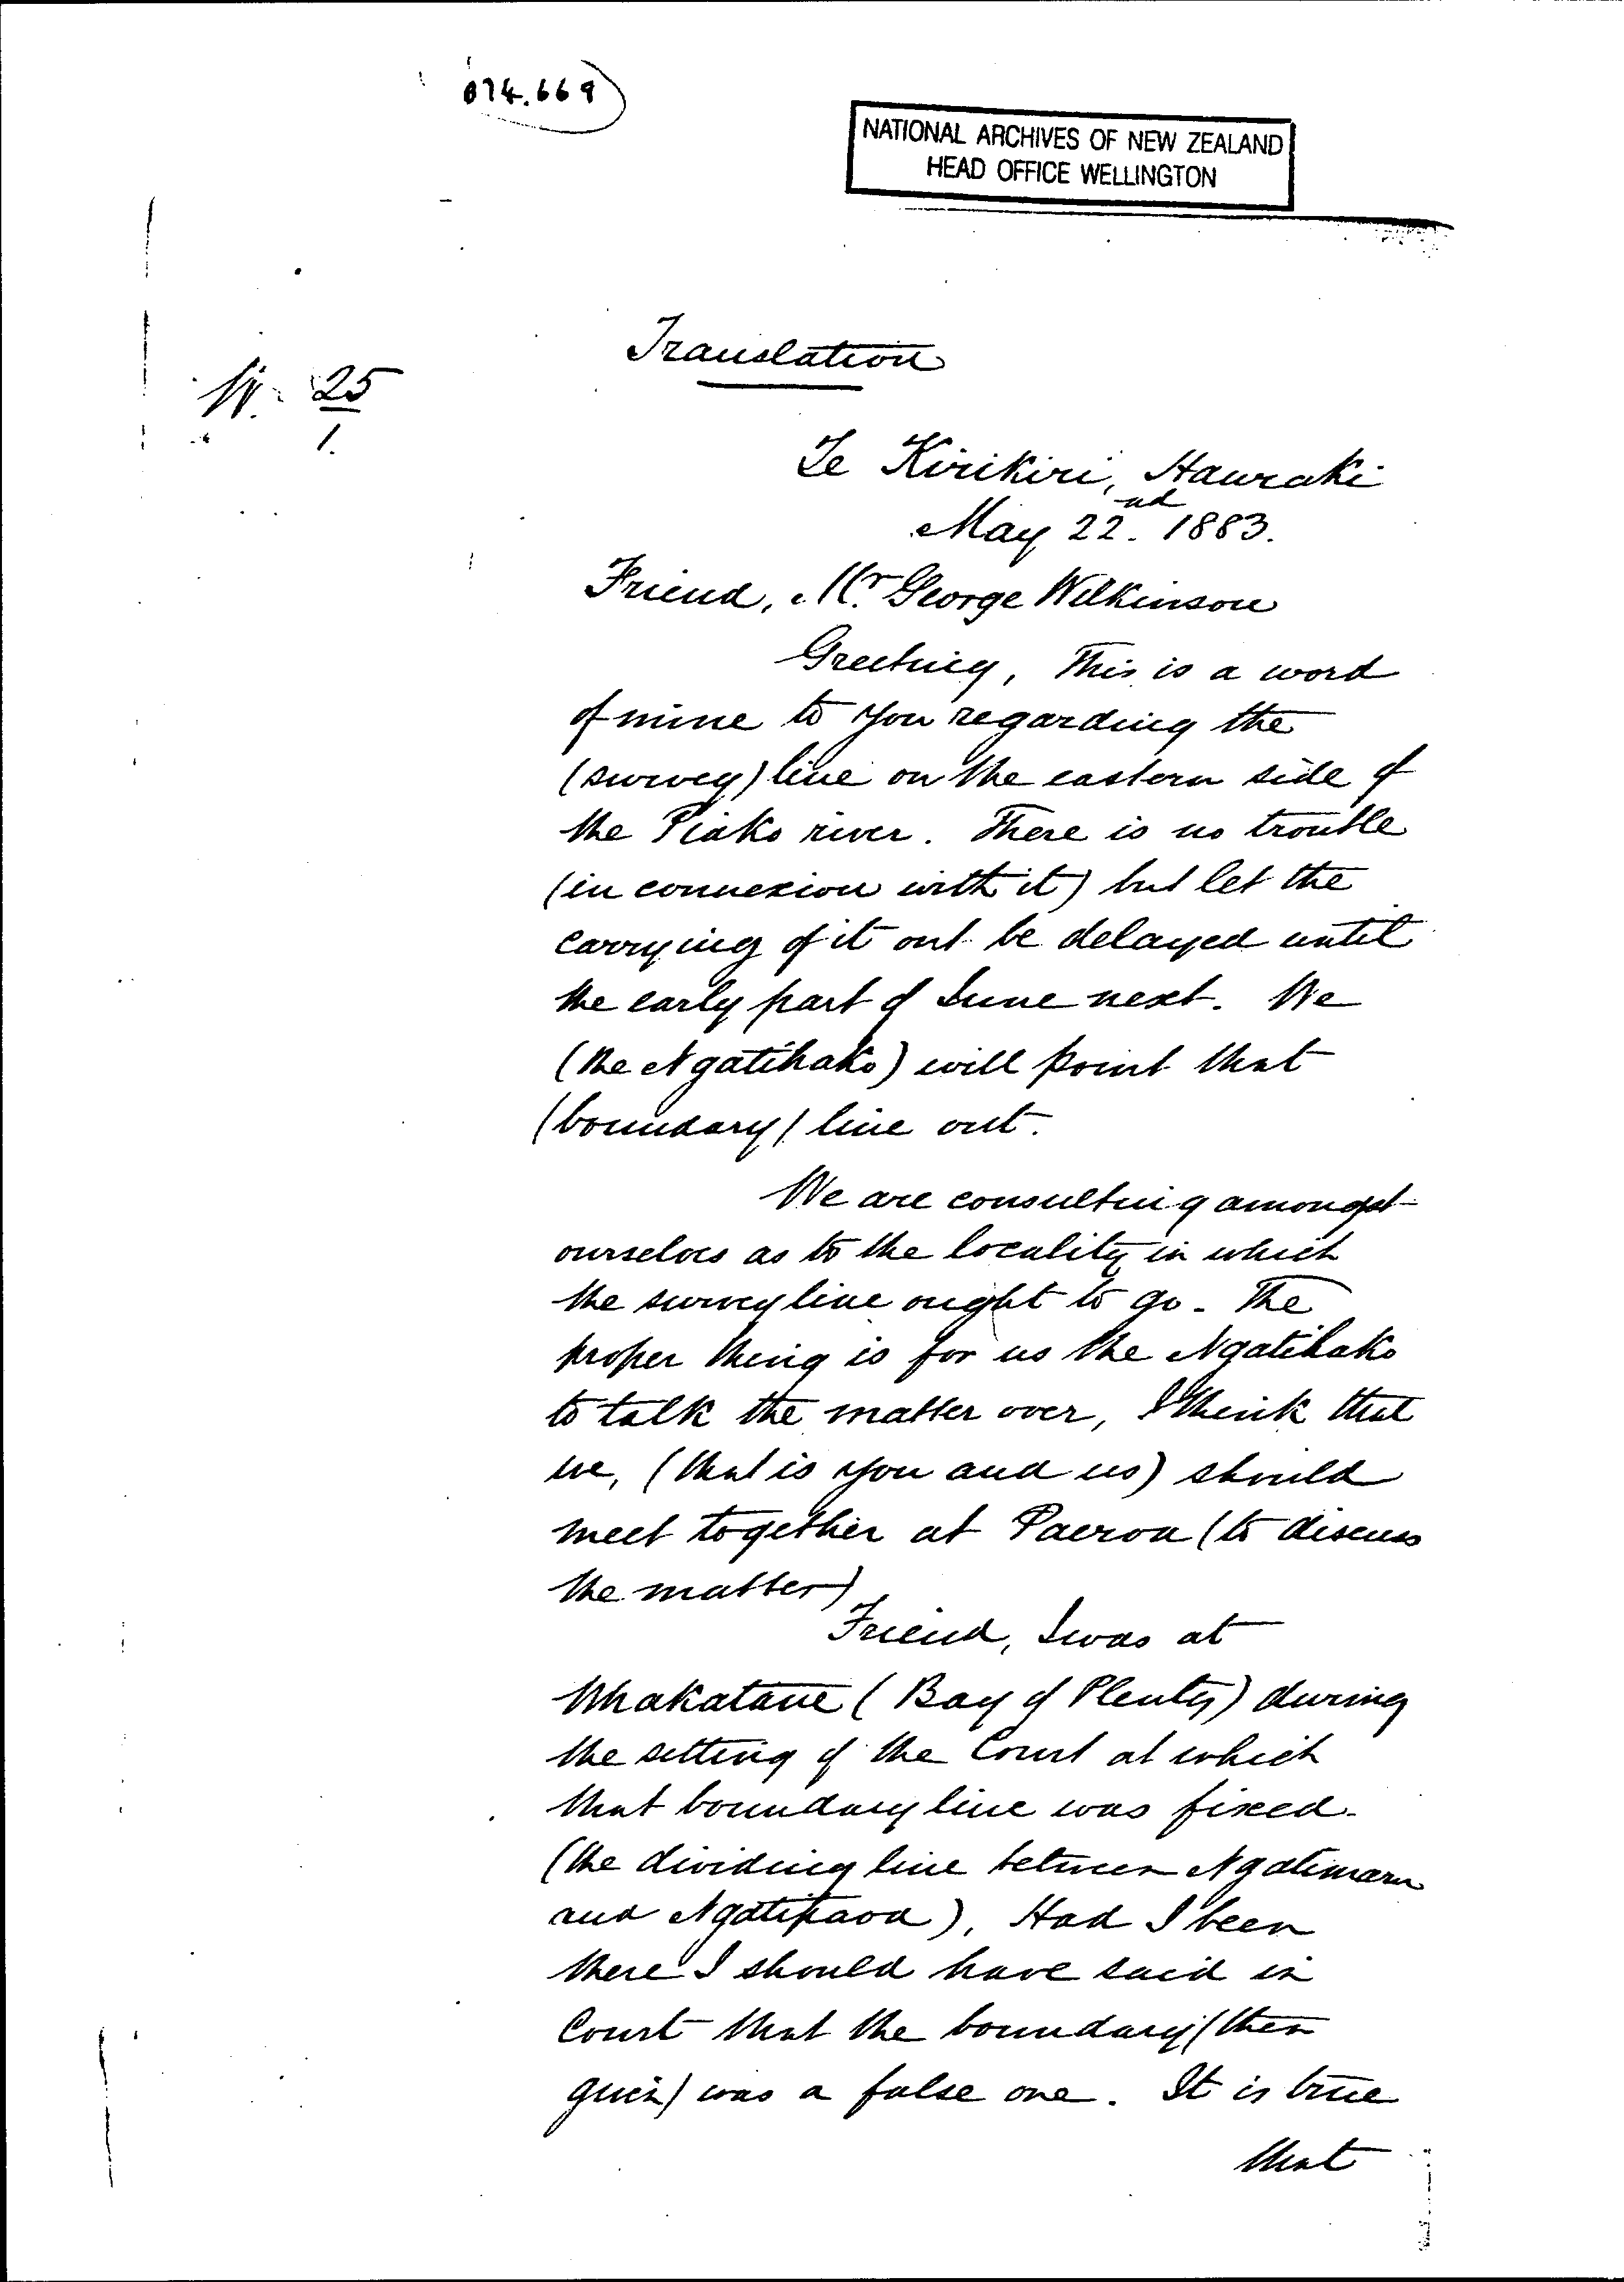 074.669
NATIONAL ARCHIVES OF NEW ZEALAND
HEAD OFFICE WELLINGTON
Translation
N. 25
1.
Te Kirikiri, Hauraki
May 22nd. 1883.
Friend, Mr. George Wilkinson
Greeting, This is a word
of mine to you regarding the
(survey) line on the eastern side of
the Piako river. There is no trouble
(in connexion with it) but let the
carrying of it out be delayed until
the early part of June next. We
(the Ngatihako) will point that
(boundary) line out.
We are consulting amongst
ourselves as to the locality in which
the survey line ought to go. The
proper thing is for us the Ngatihako
to talk the matter over, I think that
we, (that is you and us) should
meet together at Paeroa (to discuss
the matter)
Friend, I was at
Whakatane (Bay of Plenty) during
the sitting of the Court at which
that boundary line was fixed.
(the dividing line between Ngatimaru
and Ngatipaoa), Had I been
there I should have said in
Court that the boundary (then
given) was a false one. It is true
that